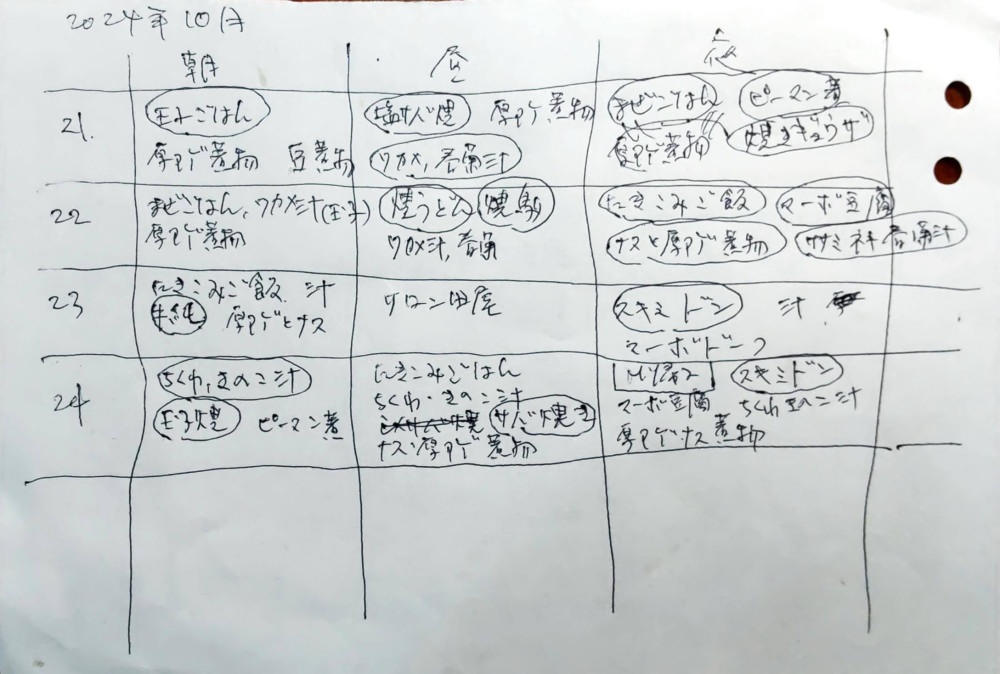 2024年10月
朝 昼 夜
21. 玉子ごはん 塩サバ焼 厚アゲ煮物 まぜごはん ピーマン煮
厚アゲ煮物 豆煮物 ワカメ、春菊汁 厚アゲ煮物 焼きギョウザ
22 まぜごはん、ワカメ汁(玉子) 焼うどん 焼鳥 たきこみご飯 マーボ豆腐
厚アゲ煮物 ワカメ汁, 春菊 ナスと厚アゲ煮物 ササミ 春菊汁
23 たきこみご飯 汁 サローン田屋 スキミドン 汁
厚アゲとナス マーボドーフ
24 ちくわ,きのこ汁 たきこみごはん スキミドン
玉子焼 ピーマン煮 ちくわ・きのこ汁 マーボ豆腐 ちくわきのこ汁
サバ焼き 厚アゲナス煮物
ナス・厚アゲ煮物